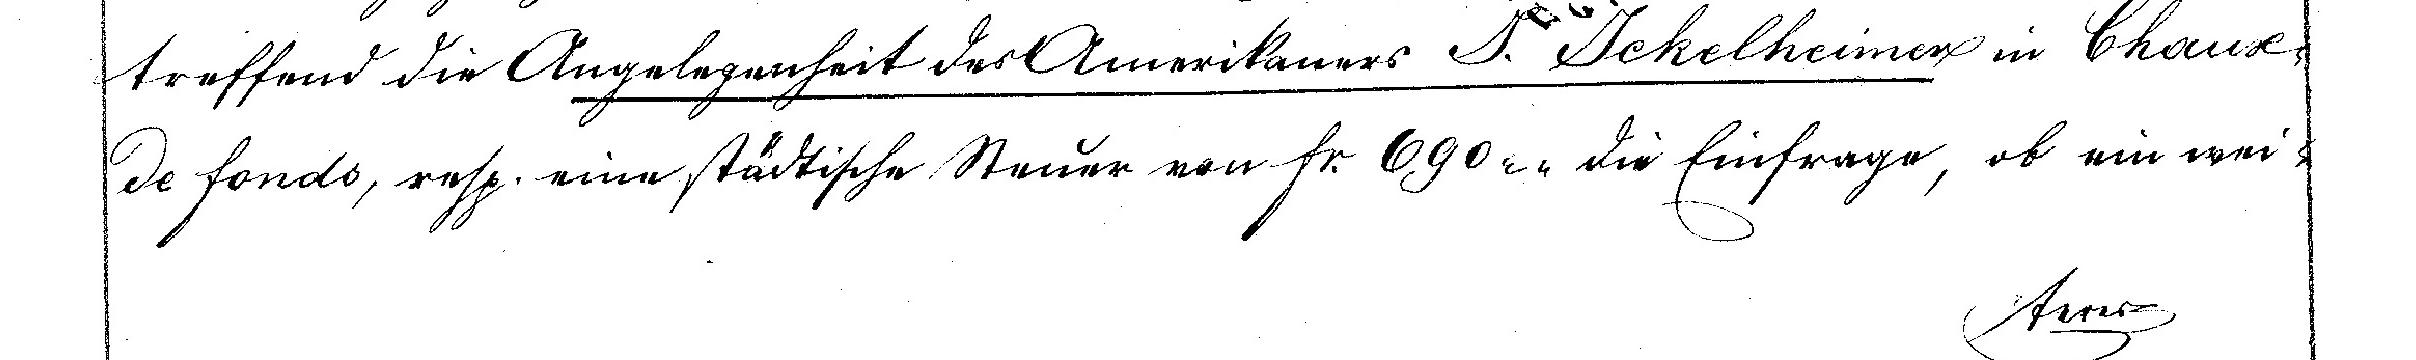 treffend die Angelegenheit des Amerikaners S. Ickelheimer in Chaux-
de fonds, resp. eine städtische Steuer von fr. 690 „ „ die Einfrage, ob ein wei-
teres